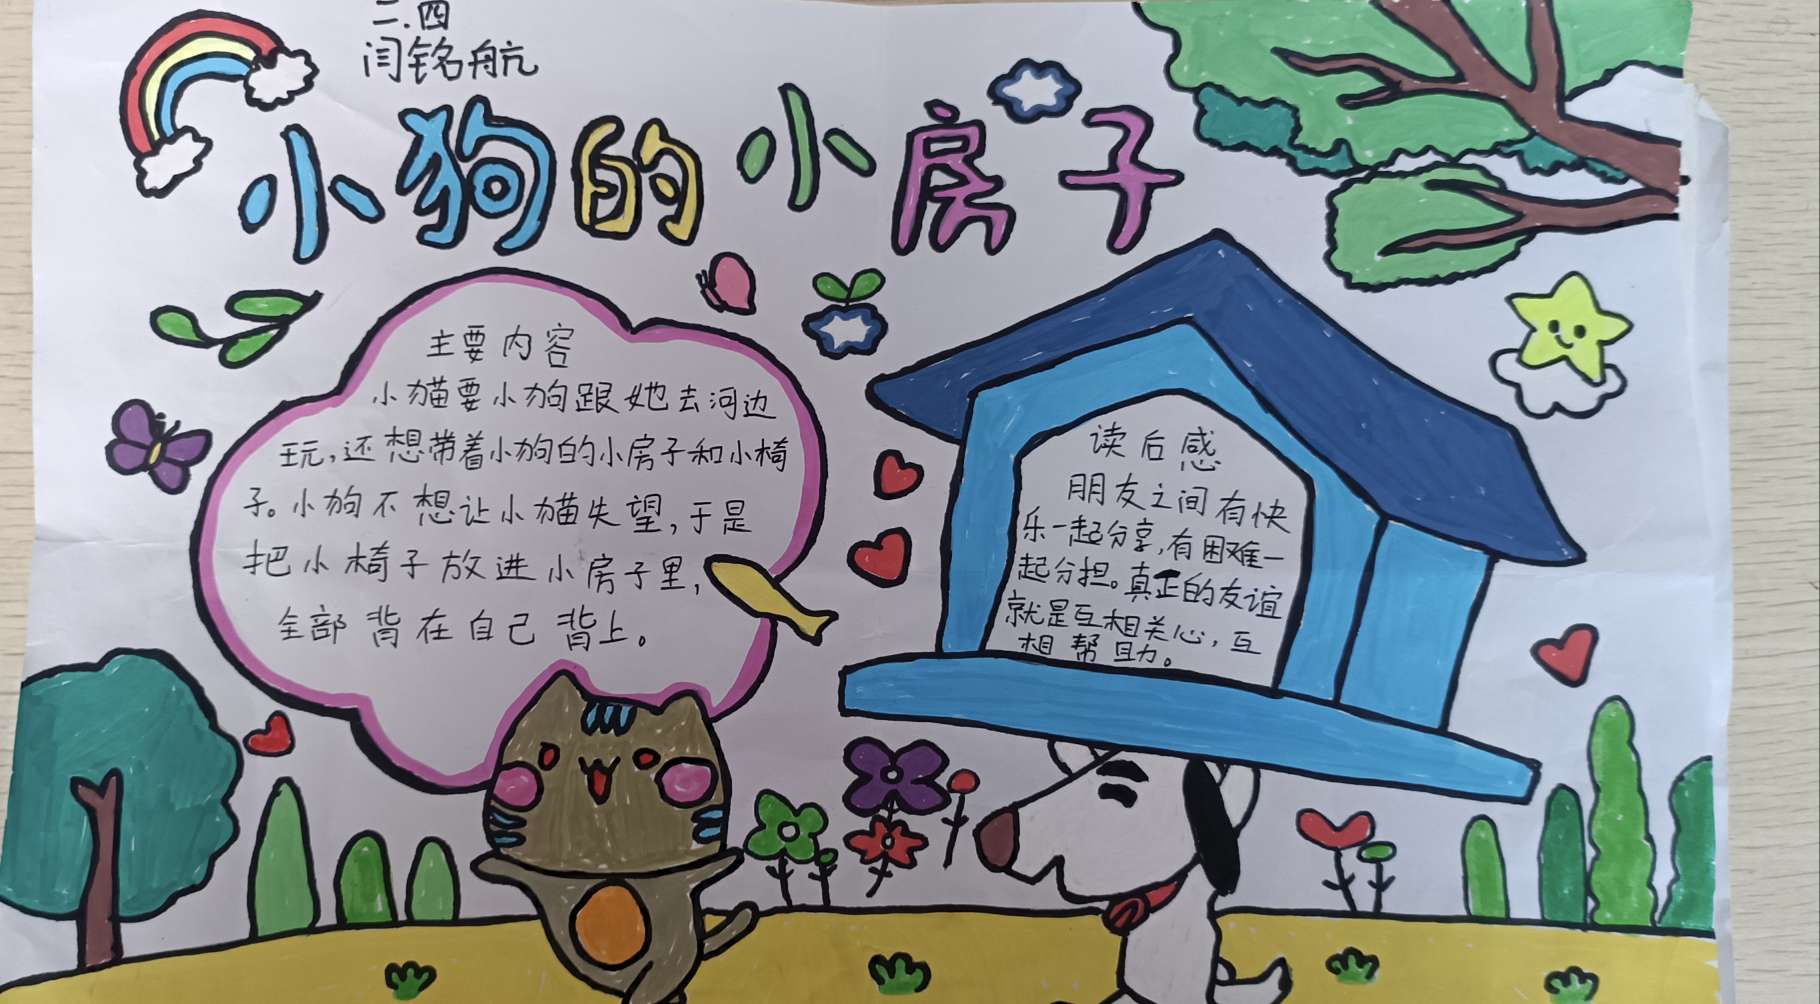 二.四
闫铭航
小狗的小房子
主要内容
小猫要小狗跟她去河边
玩,还想带着小狗的小房子和小椅
子。小狗不想让小猫失望,于是
把小椅子放进小房子里,
全部背在自己背上。
读后感
朋友之间有快
乐一起分享,有困难一
起分担。真正的友谊
就是互相关心,互
相帮助。